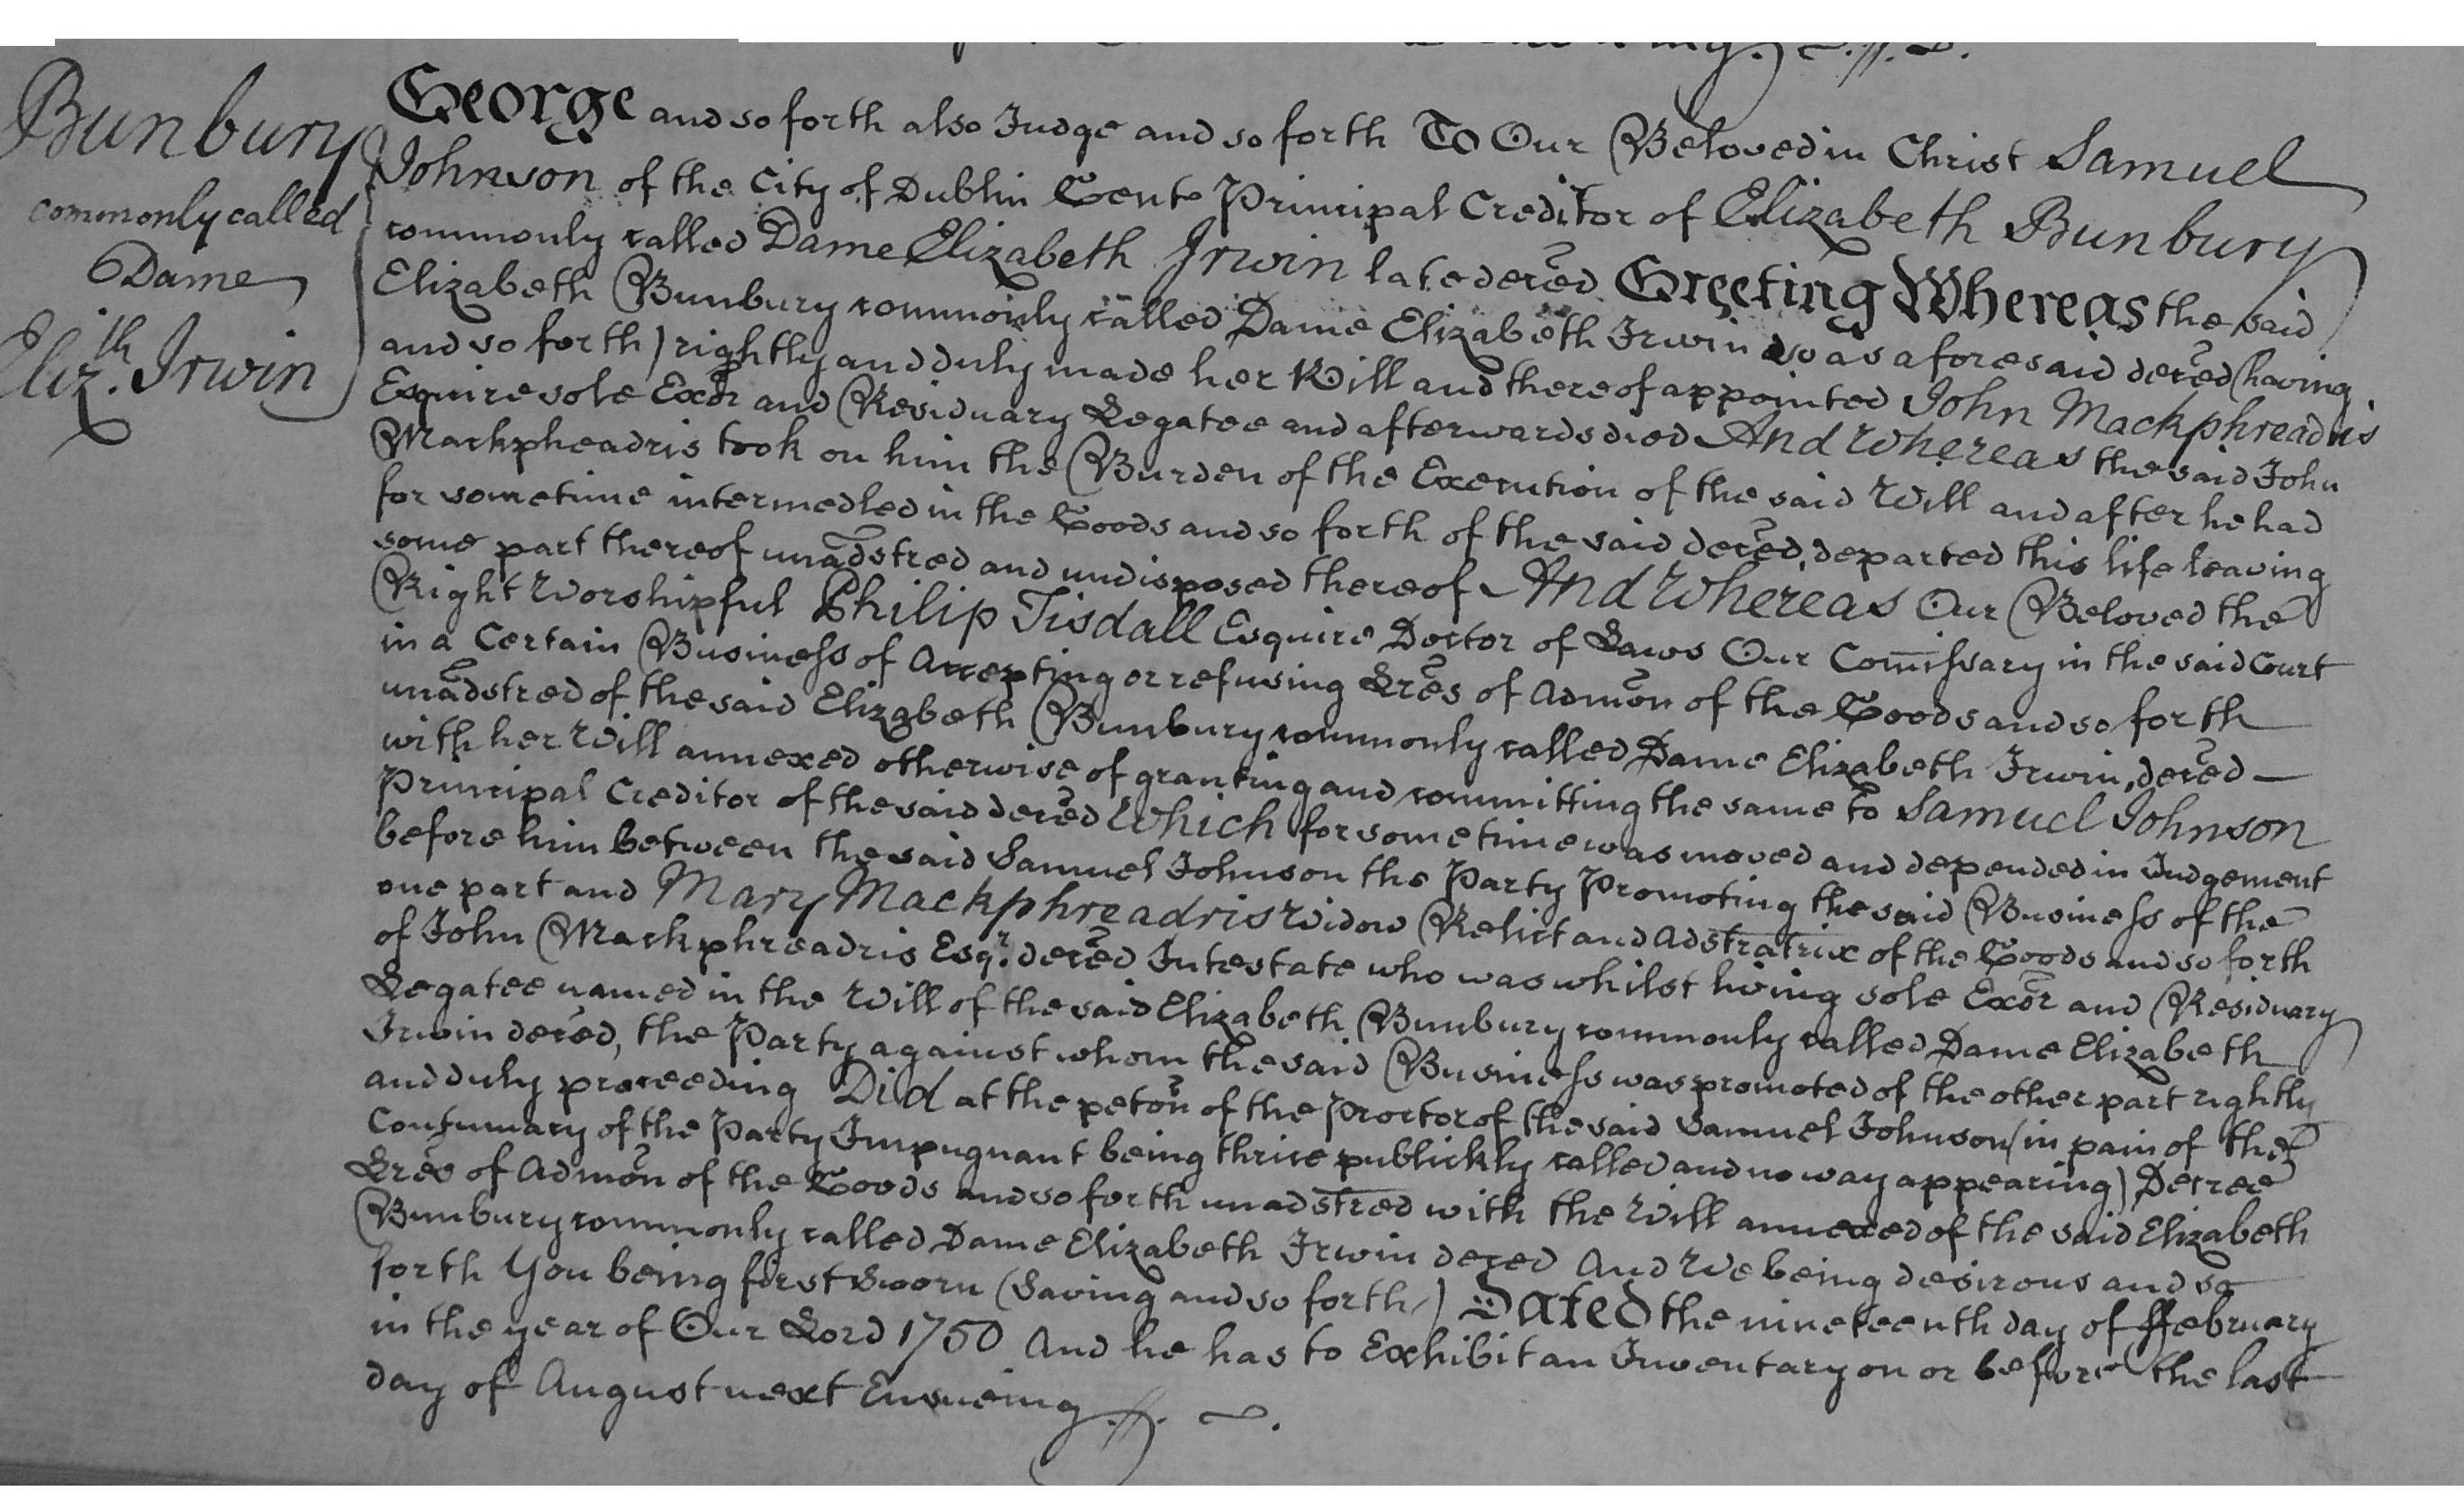 Bunbury
commonly called
Dame
Eliz.th Irwin
George and so forth also Judge and so forth To Our Beloved in Christ Samuel
Johnson of the City of Dublin Gent Principal Creditor of Elizabeth Bunbury
commonly called Dame Elizabeth Irwin late deced Greeting Whereas the said
Elizabeth Bunbury commonly called Dame Elizabeth Irwin so as aforesaid deced (having
and so forth) rightly and duly made her Will and thereof appointed John Mackphreadris
Esquire sole Exor and Residuary Legatee and afterwards died And Whereas the said John
Mackpheadris took on him the Burden of the Execution of the said Will and after he had
for sometime intermedled in the Goods and so forth of the said deced, departed this life leaving
some part thereof unadstred and undisposed thereof And Whereas Our Beloved the
Right Worshipful Philip Tisdall Esquire Doctor of Laws Our Comissary in the said Court
in a Certain Business of Accepting or refusing Lres of Admon of the Goods and so forth
unadstred of the said Elizabeth Bunbury commonly called Dame Elizabeth Irwin, deced —
with her Will annexed otherwise of granting and committing the same to Samuel Johnson
Principal Creditor of the said deced Which for sometime was moved and depended in Judgement
before him between the said Samuel Johnson the Party Promoting the said Business of the
one part and Mary Mackphreadris Widow Relict and Adstratrix of the Goods and so forth
of John Mackphreadris Esqr. deced Intestate who was whilst living sole Exor and Residuary
Legatee named in the Will of the said Elizabeth Bunbury commonly called Dame Elizabeth
Irwin deced, the Party against whom the said Business was promoted of the other part rightly
and duly proceeding Did at the peton of the Proctor of the said Samuel Johnson (in pain of the
Contumacy of the Party Impugnant being thrice publickly called and no way appearing) Decree
Lres of Admon of the Goods and so forth unadstred with the Will annexed of the said Elizabeth
Bunbury commonly called Dame Elizabeth Irwin deced And We being desirous and so
forth You being first Sworn (Saving and so forth) Dated the nineteenth day of ffebruary
in the year of Our Lord 1750 And he has to Exhibit an Inventary on or before the last
day of August next Ensueing